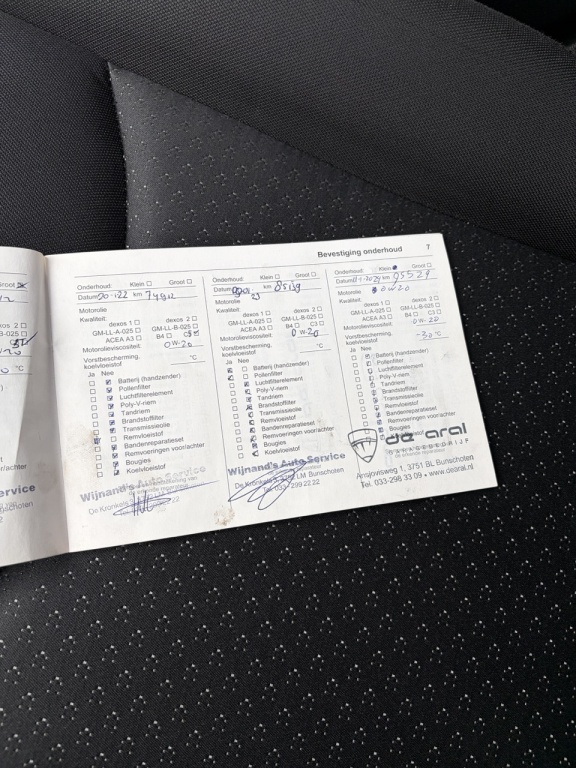 Bevestiging onderhoud 7
Onderhoud: Klein Groot
Datum 20-1-22 km
Motorolie
Kwaliteit:
dexos 1 dexos 2
GM-LL-A-025 GM-LL-B-025
ACEA A3 B4 C3
Motorolieviscositeit: 0W-20
Vorstbescherming, koelvloeistof °C
Ja Nee
Batterij (handzender)
Pollenfilter
Luchtfilterelement
Poly-V-riem
Tandriem
Brandstoffilter
Transmissieolie
Remvloeistof
Bandenreparatieset
Remvoeringen voor/achter
Bougies
Koelvloeistof
Wijnand's Auto Service
De Kronkels
Onderhoud: Klein Groot
Datum km
Motorolie
Kwaliteit:
dexos 1 dexos 2
GM-LL-A-025 GM-LL-B-025
ACEA A3 B4 C3
Motorolieviscositeit: 0W-20
Vorstbescherming, koelvloeistof °C
Ja Nee
Batterij (handzender)
Pollenfilter
Luchtfilterelement
Poly-V-riem
Tandriem
Brandstoffilter
Transmissieolie
Remvloeistof
Bandenreparatieset
Remvoeringen voor/achter
Bougies
Koelvloeistof
Wijnand's Auto Service
De Kronkels LM Bunschoten
Tel. 033-299 22 22
Onderhoud: Klein Groot
Datum km 95529
Motorolie 0W20
Kwaliteit:
dexos 1 dexos 2
GM-LL-A-025 GM-LL-B-025
ACEA A3 B4 C3
Motorolieviscositeit: 0W-20
Vorstbescherming, koelvloeistof -30 °C
Ja Nee
Batterij (handzender)
Pollenfilter
Luchtfilterelement
Poly-V-riem
Tandriem
Brandstoffilter
Transmissieolie
Remvloeistof
Bandenreparatieset
Remvoeringen voor/achter
Bougies
de aral
GARAGEBEDRIJF
Ansjovisweg 1, 3751 BL Bunschoten
Tel. 033-298 33 09 • www.dearal.nl